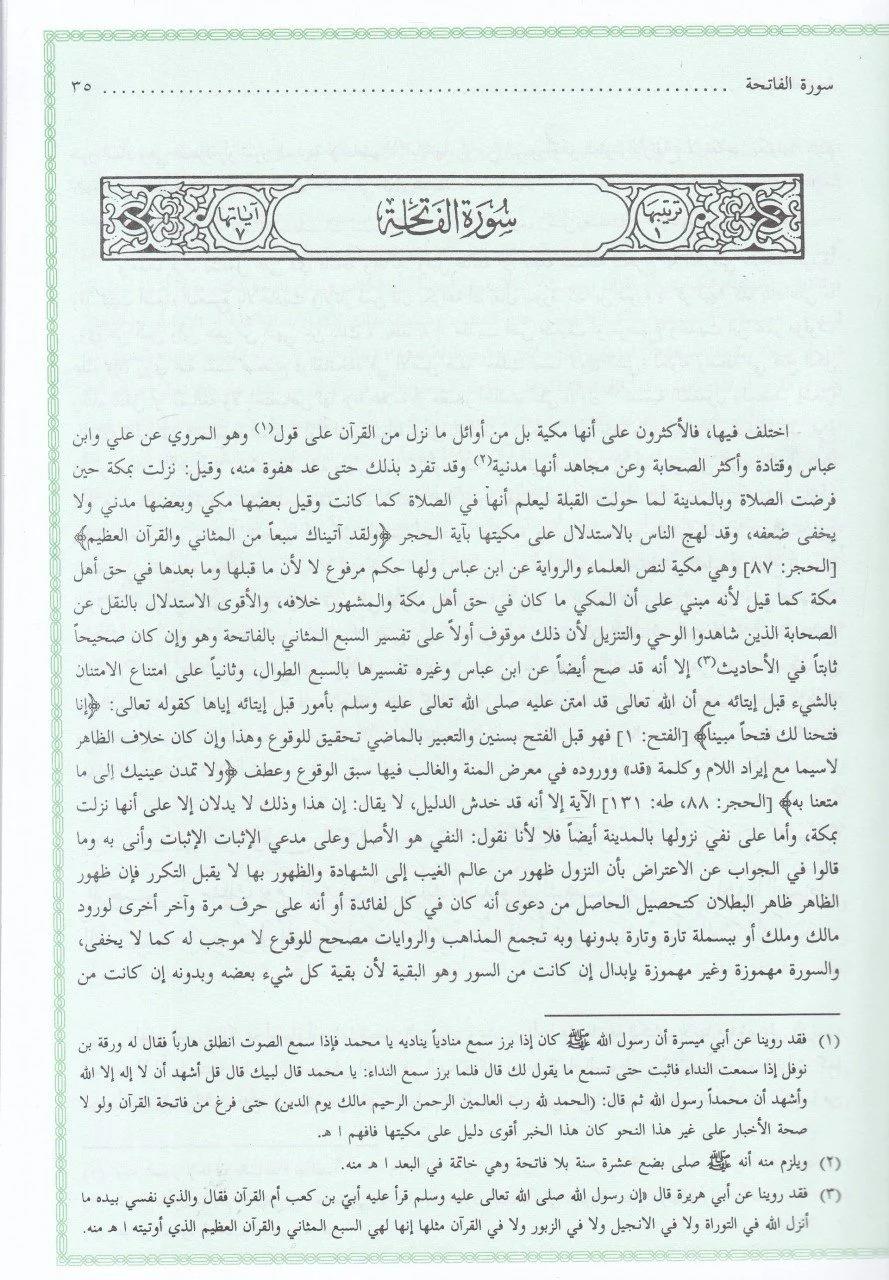 سورة الفاتحة ........................................................................ ٣٥
ترتيبها ١ سُورَة الفَاتِحَة آياتها ٧
اختلف فيها، فالأكثرون على أنها مكية بل من أوائل ما نزل من القرآن على قول(١) وهو المروي عن علي وابن
عباس وقتادة وأكثر الصحابة وعن مجاهد أنها مدنية(٢) وقد تفرد بذلك حتى عد هفوة منه، وقيل: نزلت بمكة حين
فرضت الصلاة وبالمدينة لما حولت القبلة ليعلم أنها في الصلاة كما كانت وقيل بعضها مكي وبعضها مدني ولا
يخفى ضعفه، وقد لهج الناس بالاستدلال على مكيتها بآية الحجر ﴿ولقد آتيناك سبعاً من المثاني والقرآن العظيم﴾
[الحجر: ٨٧] وهي مكية لنص العلماء والرواية عن ابن عباس ولها حكم مرفوع لا لأن ما قبلها وما بعدها في حق أهل
مكة كما قيل لأنه مبني على أن المكي ما كان في حق أهل مكة والمشهور خلافه، والأقوى الاستدلال بالنقل عن
الصحابة الذين شاهدوا الوحي والتنزيل لأن ذلك موقوف أولاً على تفسير السبع المثاني بالفاتحة وهو وإن كان صحيحاً
ثابتاً في الأحاديث(٣) إلا أنه قد صح أيضاً عن ابن عباس وغيره تفسيرها بالسبع الطوال، وثانياً على امتناع الامتنان
بالشيء قبل إيتائه مع أن الله تعالى قد امتن عليه صلى الله تعالى عليه وسلم بأمور قبل إيتائه إياها كقوله تعالى: ﴿إنا
فتحنا لك فتحاً مبيناً﴾ [الفتح: ١] فهو قبل الفتح بسنين والتعبير بالماضي تحقيق للوقوع وهذا وإن كان خلاف الظاهر
لاسيما مع إيراد اللام وكلمة «قد» ووروده في معرض المنة والغالب فيها سبق الوقوع وعطف ﴿ولا تمدن عينيك إلى ما
متعنا به﴾ [الحجر: ٨٨، طه: ١٣١] الآية إلا أنه قد خدش الدليل، لا يقال: إن هذا وذلك لا يدلان إلا على أنها نزلت
بمكة، وأما على نفي نزولها بالمدينة أيضاً فلا لأنا نقول: النفي هو الأصل وعلى مدعي الإثبات الإثبات وأنى به وما
قالوا في الجواب عن الاعتراض بأن النزول ظهور من عالم الغيب إلى الشهادة والظهور بها لا يقبل التكرر فإن ظهور
الظاهر ظاهر البطلان كتحصيل الحاصل من دعوى أنه كان في كل لفائدة أو أنه على حرف مرة وآخر أخرى لورود
مالك وملك أو ببسملة تارة وتارة بدونها وبه تجمع المذاهب والروايات مصحح للوقوع لا موجب له كما لا يخفى،
والسورة مهموزة وغير مهموزة بإبدال إن كانت من السور وهو البقية لأن بقية كل شيء بعضه وبدونه إن كانت من
(١) فقد روينا عن أبي ميسرة أن رسول الله ﷺ كان إذا برز سمع منادياً يناديه يا محمد فإذا سمع الصوت انطلق هارباً فقال له ورقة بن
نوفل إذا سمعت النداء فاثبت حتى تسمع ما يقول لك قال فلما برز سمع النداء: يا محمد قال لبيك قال قل أشهد أن لا إله إلا الله
وأشهد أن محمداً رسول الله ثم قال: (الحمد لله رب العالمين الرحمن الرحيم مالك يوم الدين) حتى فرغ من فاتحة القرآن ولو لا
صحة الأخبار على غير هذا النحو كان هذا الخبر أقوى دليل على مكيتها فافهم ا هـ.
(٢) ويلزم منه أنه ﷺ صلى بضع عشرة سنة بلا فاتحة وهي خاتمة في البعد ا هـ منه.
(٣) فقد روينا عن أبي هريرة قال «إن رسول الله صلى الله تعالى عليه وسلم قرأ عليه أبيّ بن كعب أم القرآن فقال والذي نفسي بيده ما
أنزل الله في التوراة ولا في الانجيل ولا في الزبور ولا في القرآن مثلها إنها لهي السبع المثاني والقرآن العظيم الذي أوتيته ا هـ منه.